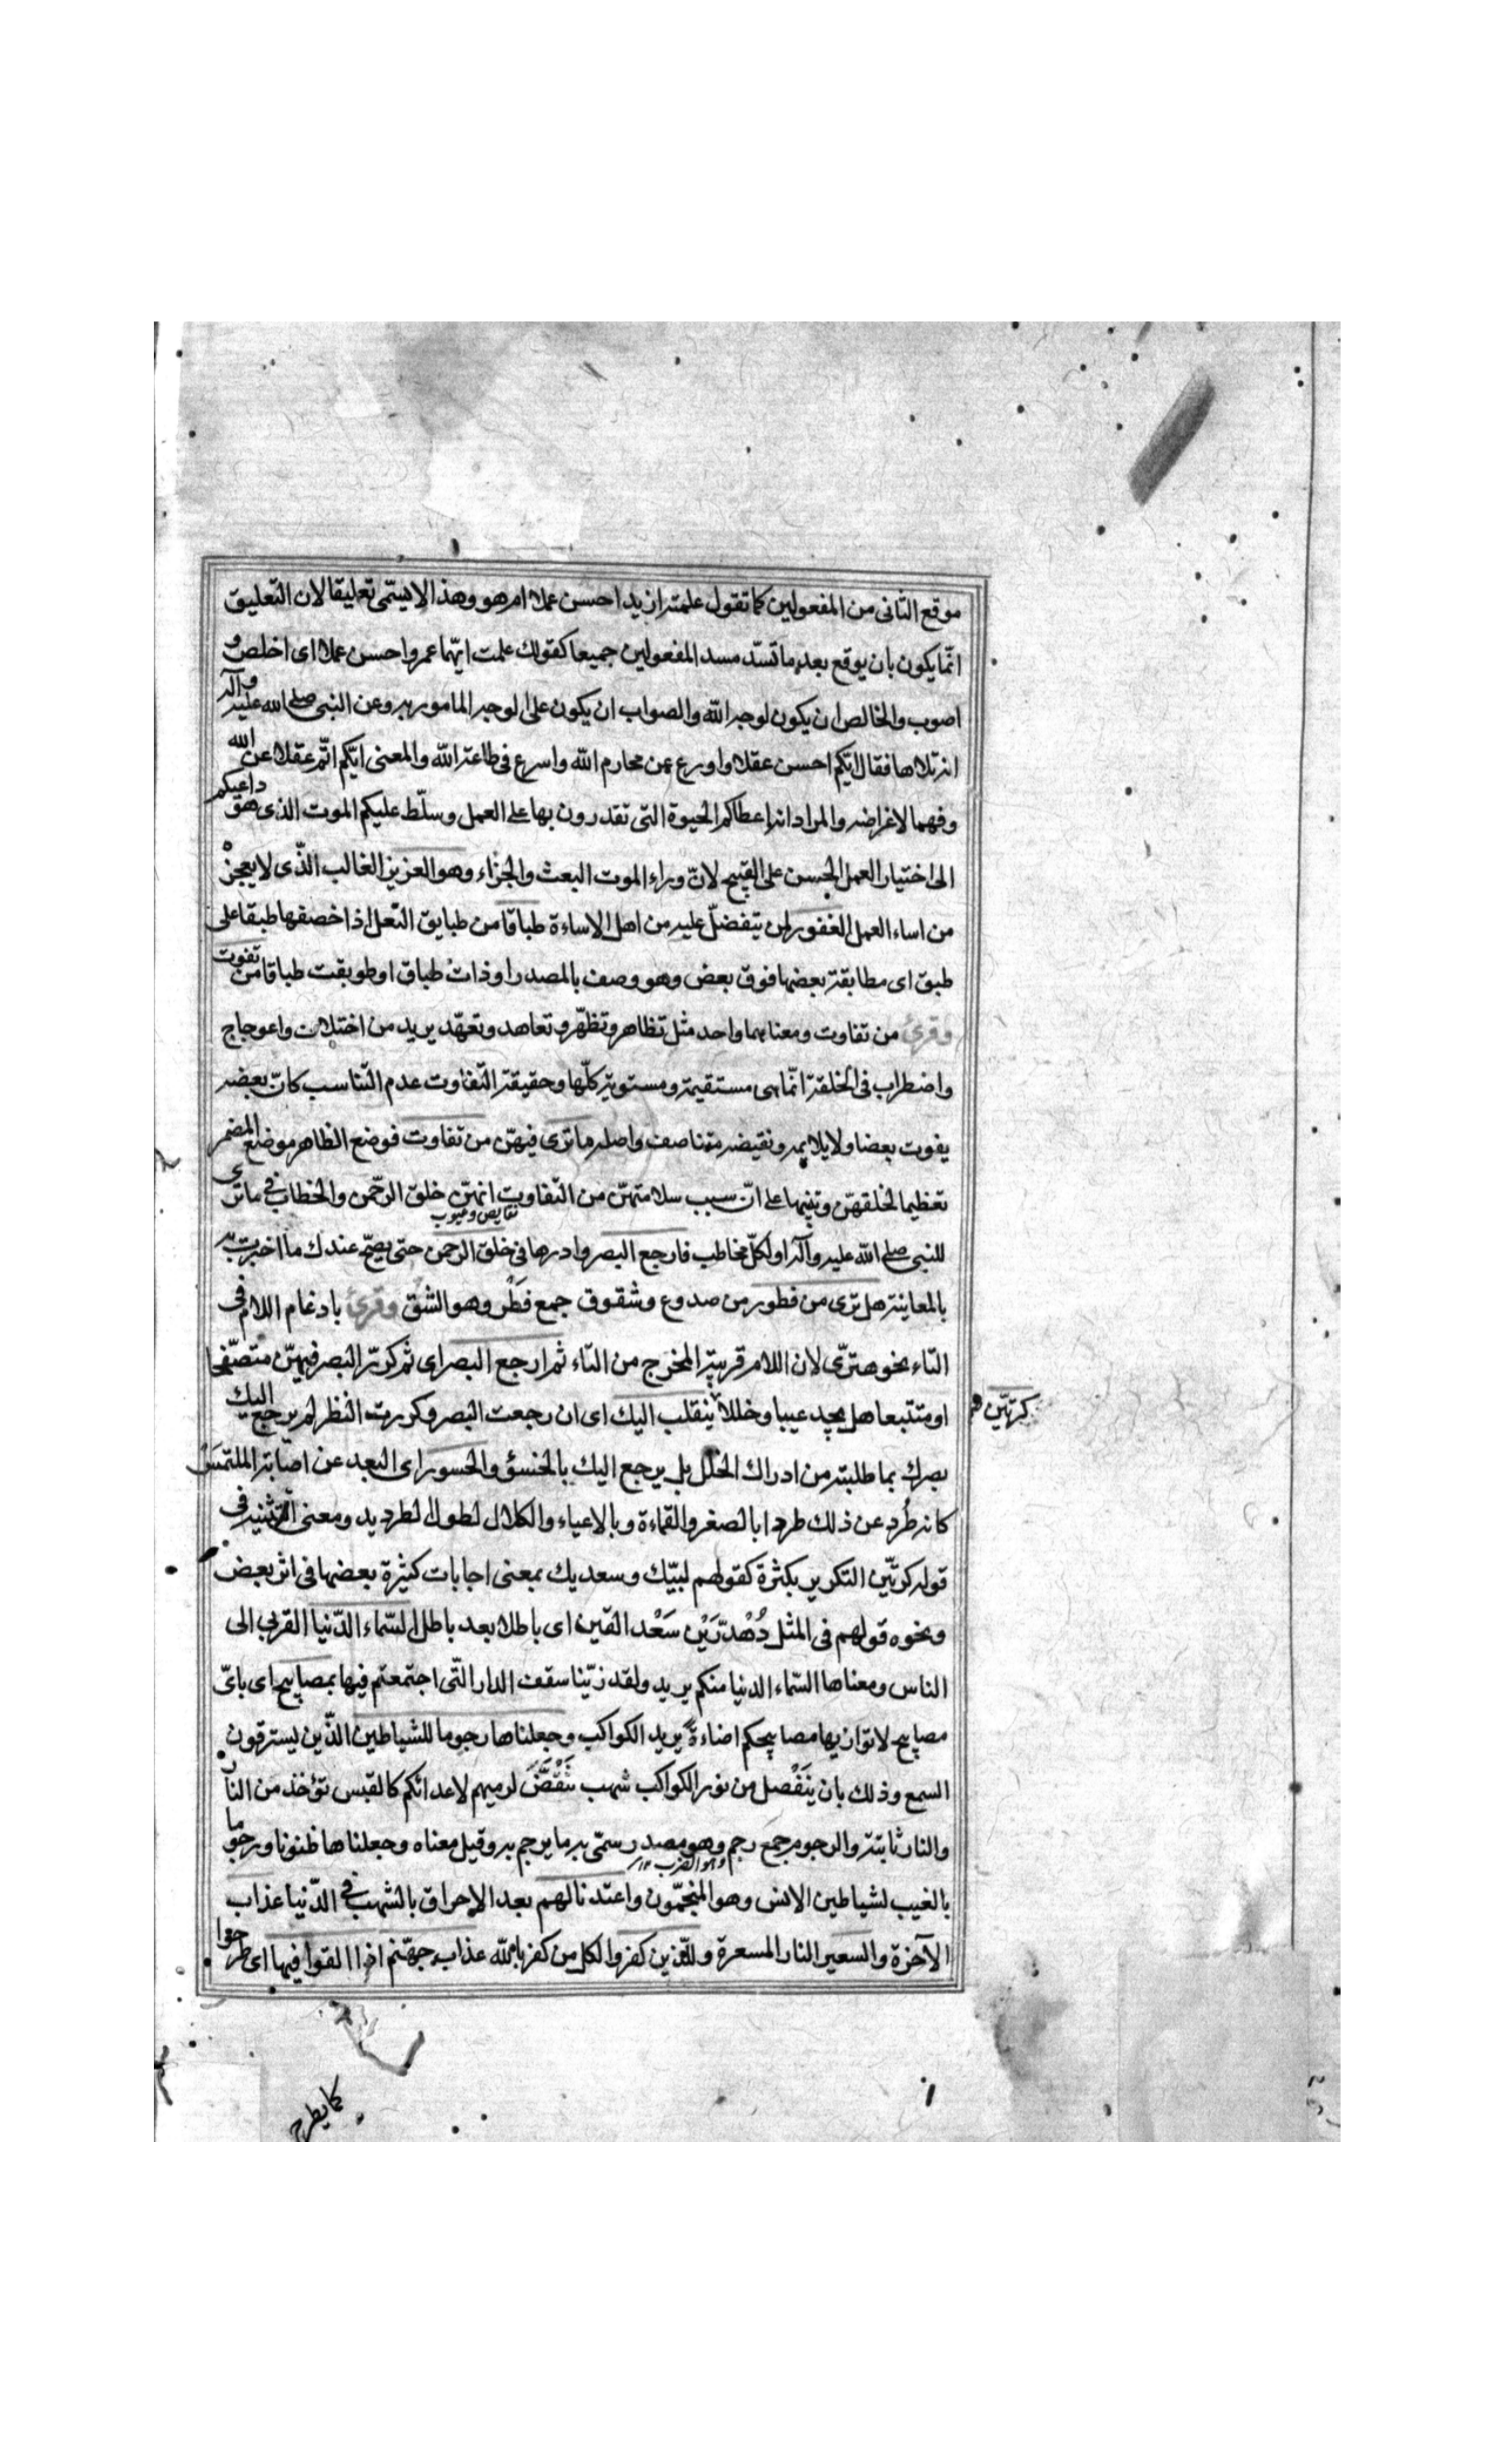 موقع الثانى من المفعولين كما تقول علمته ازيد احسن عملا ام هو وهذا لا يسمّى تعليقا لان التعليق
انّما يكون بان يوقع بعده ما تسدّ مسد المفعولين جميعا كقولك علمت ايّهما عمرو احسن عملا اى اخلص و
اصوب والخالص ان يكون لوجه اللّه والصواب ان يكون على الوجه المامور به وعن النبى صلى الله عليه وآله
انه تلاها فقال ايّكم احسن عقلا واورع عن محارم اللّه واسرع فى طاعة اللّه والمعنى ايّكم اتمّ عقلا عن الله
وفهما لاغراضه والمراد انه اعطاكم الحيوة التى تقدرون بها على العمل وسلّط عليكم الموت الذى هو داعيكم
الى اختيار العمل الحسن على القبيح لانّ وراء الموت البعث والجزاء وهو العزيز الغالب الّذى لا يعجزه
من اساء العمل الغفور لمن يتفضّل عليه من اهل الاساءة طباقا من طبايق النّعل اذا خصفها طبقا على
طبق اى مطابقة بعضها فوق بعض وهو وصف بالمصدر او ذات طباق او طوبقت طباقا من تفوت
وقرئ من تفاوت ومعناهما واحد مثل تظاهر وتظهّر وتعاهد وتعهّد يريد من اختلاف واعوجاج
واضطراب فى الخلقة انّما هى مستقيمة ومستوية كلّها وحقيقة التّفاوت عدم التّناسب كانّ بعضه
يفوت بعضا ولا يلايمه ونقيضه متناصف واصله ما ترى فيهنّ من تفاوت فوضع الظاهر موضع المضمر
تعظيما لخلقهنّ وتنبيها على انّ سبب سلامتهنّ من التّفاوت انهنّ خلق الرّحمن والخطاب فى ما ترى
نقايص وعيوب
للنبى صلى اللّه عليه وآله او لكلّ مخاطب فارجع البصر وادرها فى خلق الرحمن حتى يصحّ عندك ما اخبرت به
بالمعاينة هل ترى من فطور من صدوع وشقوق جمع فَطْر وهو الشق وقرئ بادغام اللام فى
التّاء نحو هتّرى لان اللام قريبة المخرج من التّاء ثم ارجع البصر اى ثم كرّر البصر فيهنّ متصفّحا
او متتبّعا هل يجد عيبا وخللا ينقلب اليك اى ان رجعت البصر وكررت النظر لم يرجع اليك
كرتّين
بصرك بما طلبته من ادراك الخلل بل يرجع اليك بالخنسؤ والحسور اى البعد عن اصابة الملتمس
كانه طُرد عن ذلك طردا بالصغر والقماءة وبالاعياء والكلال لطول الطرديد ومعنى التثنية فى
قوله كرتّين التكرير بكثرة كقولهم لبيّك وسعديك بمعنى اجابات كثيرة بعضها فى اثر بعض
ونحوه قولهم فى المثل دُهْدرّيْن سَعْد القين اى باطلا بعد باطل السّماء الدّنيا القربى الى
الناس ومعناها السّماء الدنيا منكم يريد ولقد زيّنا سقف الدار الّتى اجتمعتم فيها بمصابيح اى باىّ
مصابيح لا توازيها مصابيحكم اضاءة يريد الكواكب وجعلناها رجوما للشياطين الّذين يسترقون
السمع وذلك بان ينفصل من نور الكواكب شهب تنقضّ لرميهم لاعدائكم كالقبس تؤخذ من النار
والنار ثابتة والرجوم جمع رجم وهو مصدر سمّى به ما يرجم به وقيل معناه وجعلناها ظنونا ورجوما
بالغيب لشياطين الانس وهو المنجّمون واعتدنا لهم بعد الاحراق بالشهب فى الدّنيا عذاب
الآخرة والسعير النار المسعرة وللّذين كفروا لكل من كفر باللّه عذاب جهنّم اذا القوا فيها اى طرحوا
كما يطرح